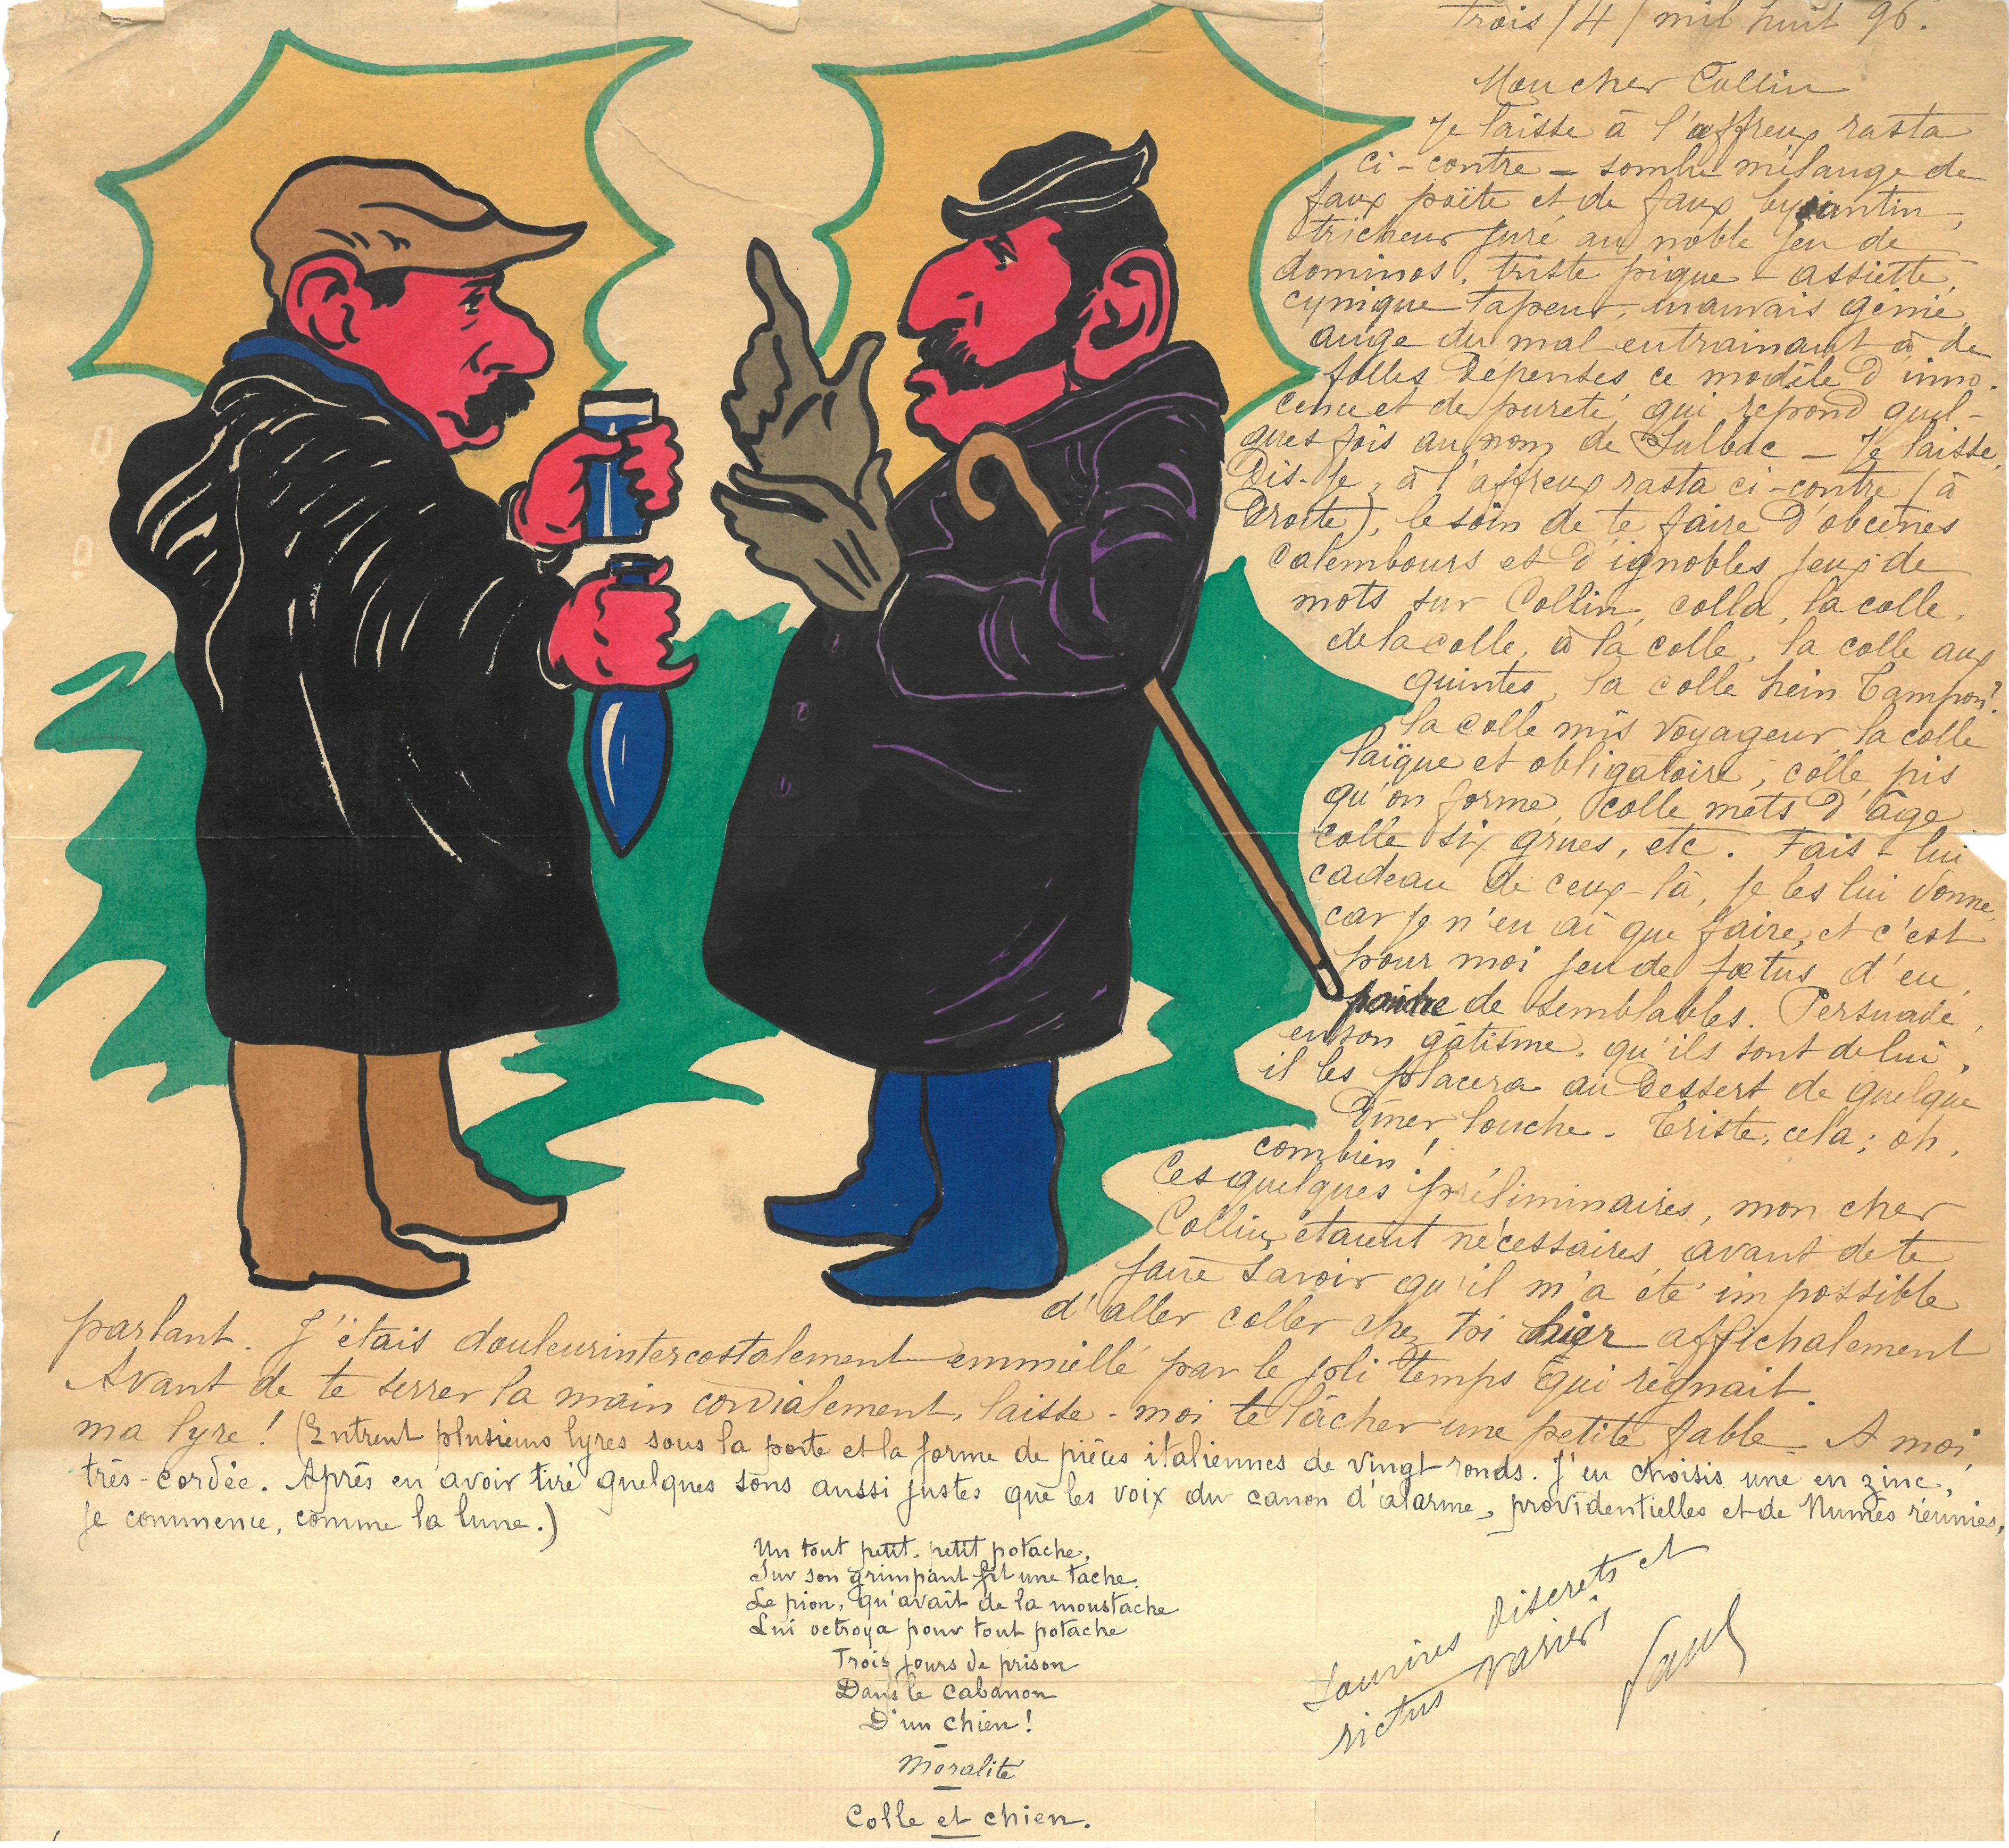 Trois / 4 / mil huit 96.
Mon cher Collin
Je laisse à l'affreux rasta
ci-contre – sombre mélange de
faux poëte et de faux bysantin,
tricheur juré au noble jeu de
dominos, triste pique-assiette,
cynique tapeur, mauvais génie
ange du mal entrainant à de
folles dépenses ce modèle d'inno-
cence et de pureté qui répond quel-
ques fois au nom de Sulbac – Je laisse,
Dis-je, à l'affreux rasta ci-contre (à
Droite), le soin de te faire d'obcènes
calembours et d'ignobles jeux de
mots sur Collin, colla, la colle,
de la colle, à la colle, la colle aux
quintes, la colle hein Tampon?
la colle mis voyageur, la colle
laïque et obligatoire, colle pis
qu'on forme, colle mets d'âge
colle six grues, etc. Fais-lui
cadeau de ceux-là, je les lui donne,
car je n'en ai que faire, et c'est
pour moi jeu de fœtus d'en
de semblables. Persuadé,
en son gâtisme, qu'ils sont de lui,
il les placera au Dessert de quelque
Dîner louche. Triste, cela; oh,
combien!
Ces quelques préliminaires, mon cher
Collin, étaient nécessaires avant de te
faire savoir qu'il m'a été impossible
d'aller coller chez toi hier affichalement
parlant. J'étais douleurintercostalement emmiellé par le joli temps qui régnait.
Avant de te serrer la main cordialement, laisse-moi te lâcher une petite fable – A moi,
ma lyre! (Entrent plusieurs lyres sous la porte et la forme de pièces italiennes de vingt ronds. J'en choisis une en zinc,
très-cordée. Après en avoir tiré quelques sons aussi justes que les voix du canon d'alarme, providentielles et de Numès réunies,
je commence, comme la lune.)
Un tout petit, petit potache,
Sur son grimpant fit une tache.
Le pion, qu'avait de la moustache
Lui octroya pour tout potache
Trois jours de prison
Dans le cabanon
D'un chien!
Moralité
Colle et chien.
Sourires discrets et
rictus variés